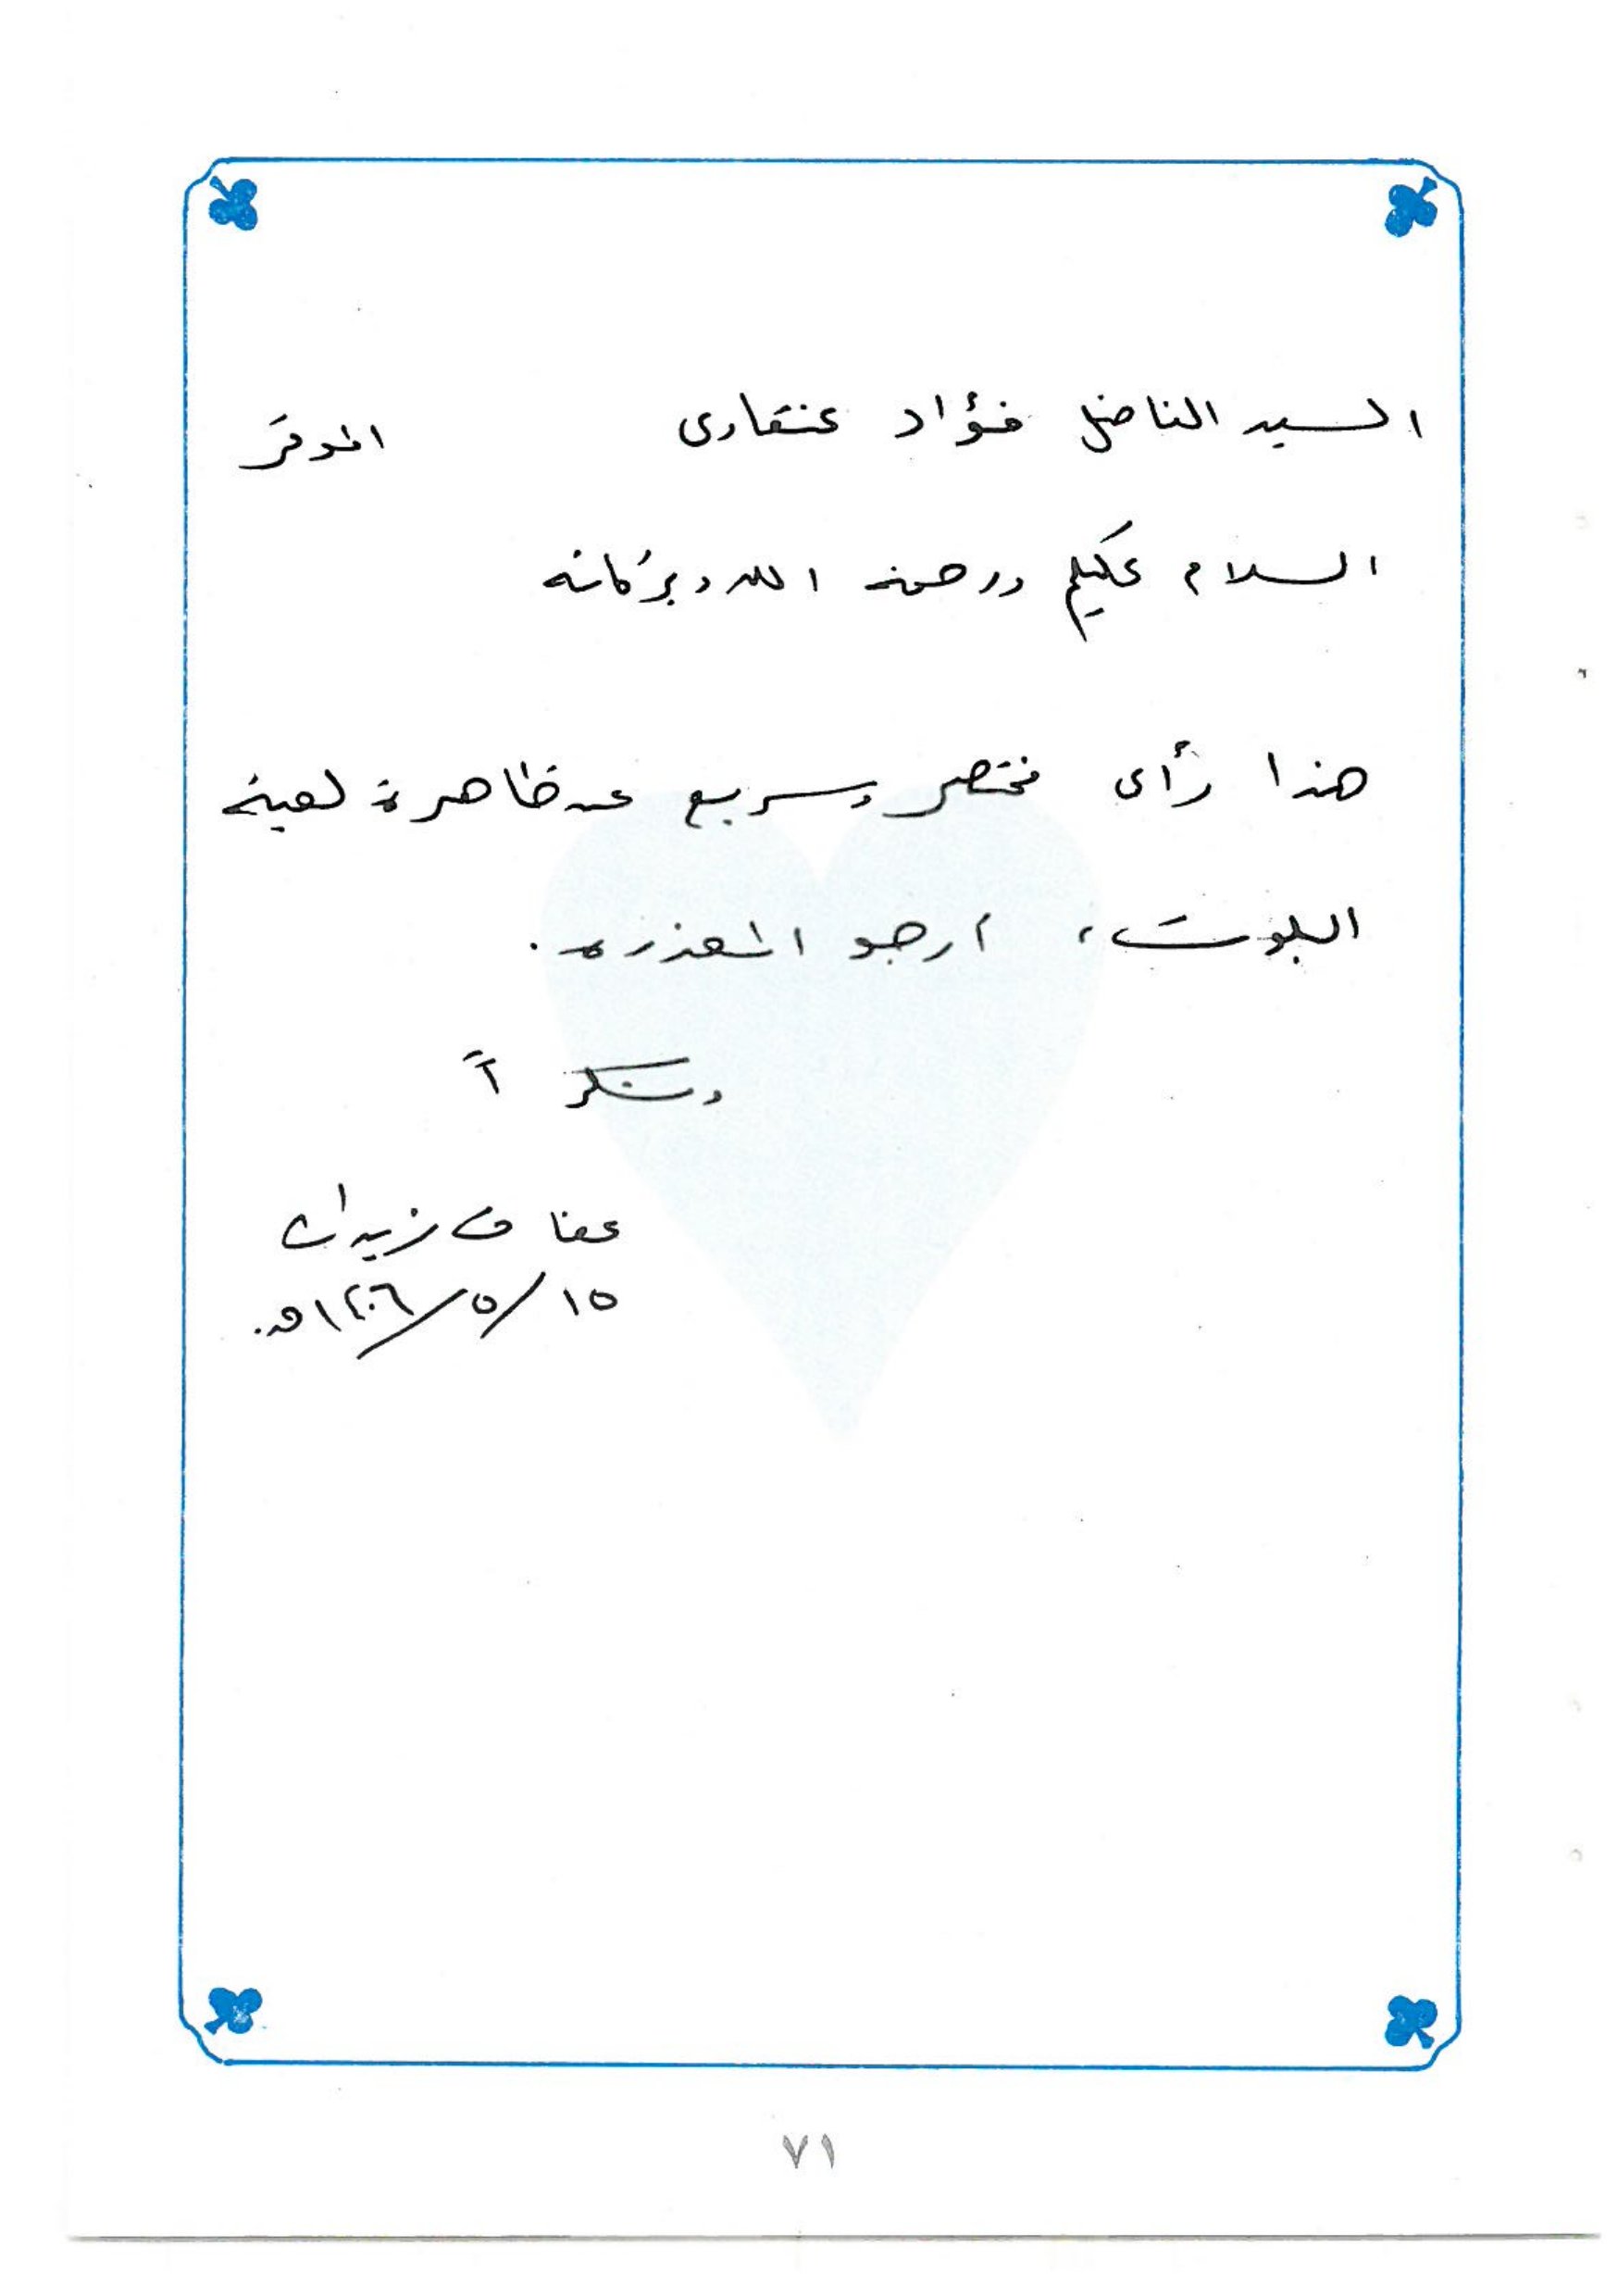 السيد الفاضل فؤاد عنقاوى الموقر
السلام عليكم ورحمة الله وبركاته
هذا رأى مختصر وسريع عن ظاهرة لعبة
البلوت، أرجو المعذرة.
وشكراً
عفاف زيدان
١٥/٥/١٤٠٦هـ.
٧١